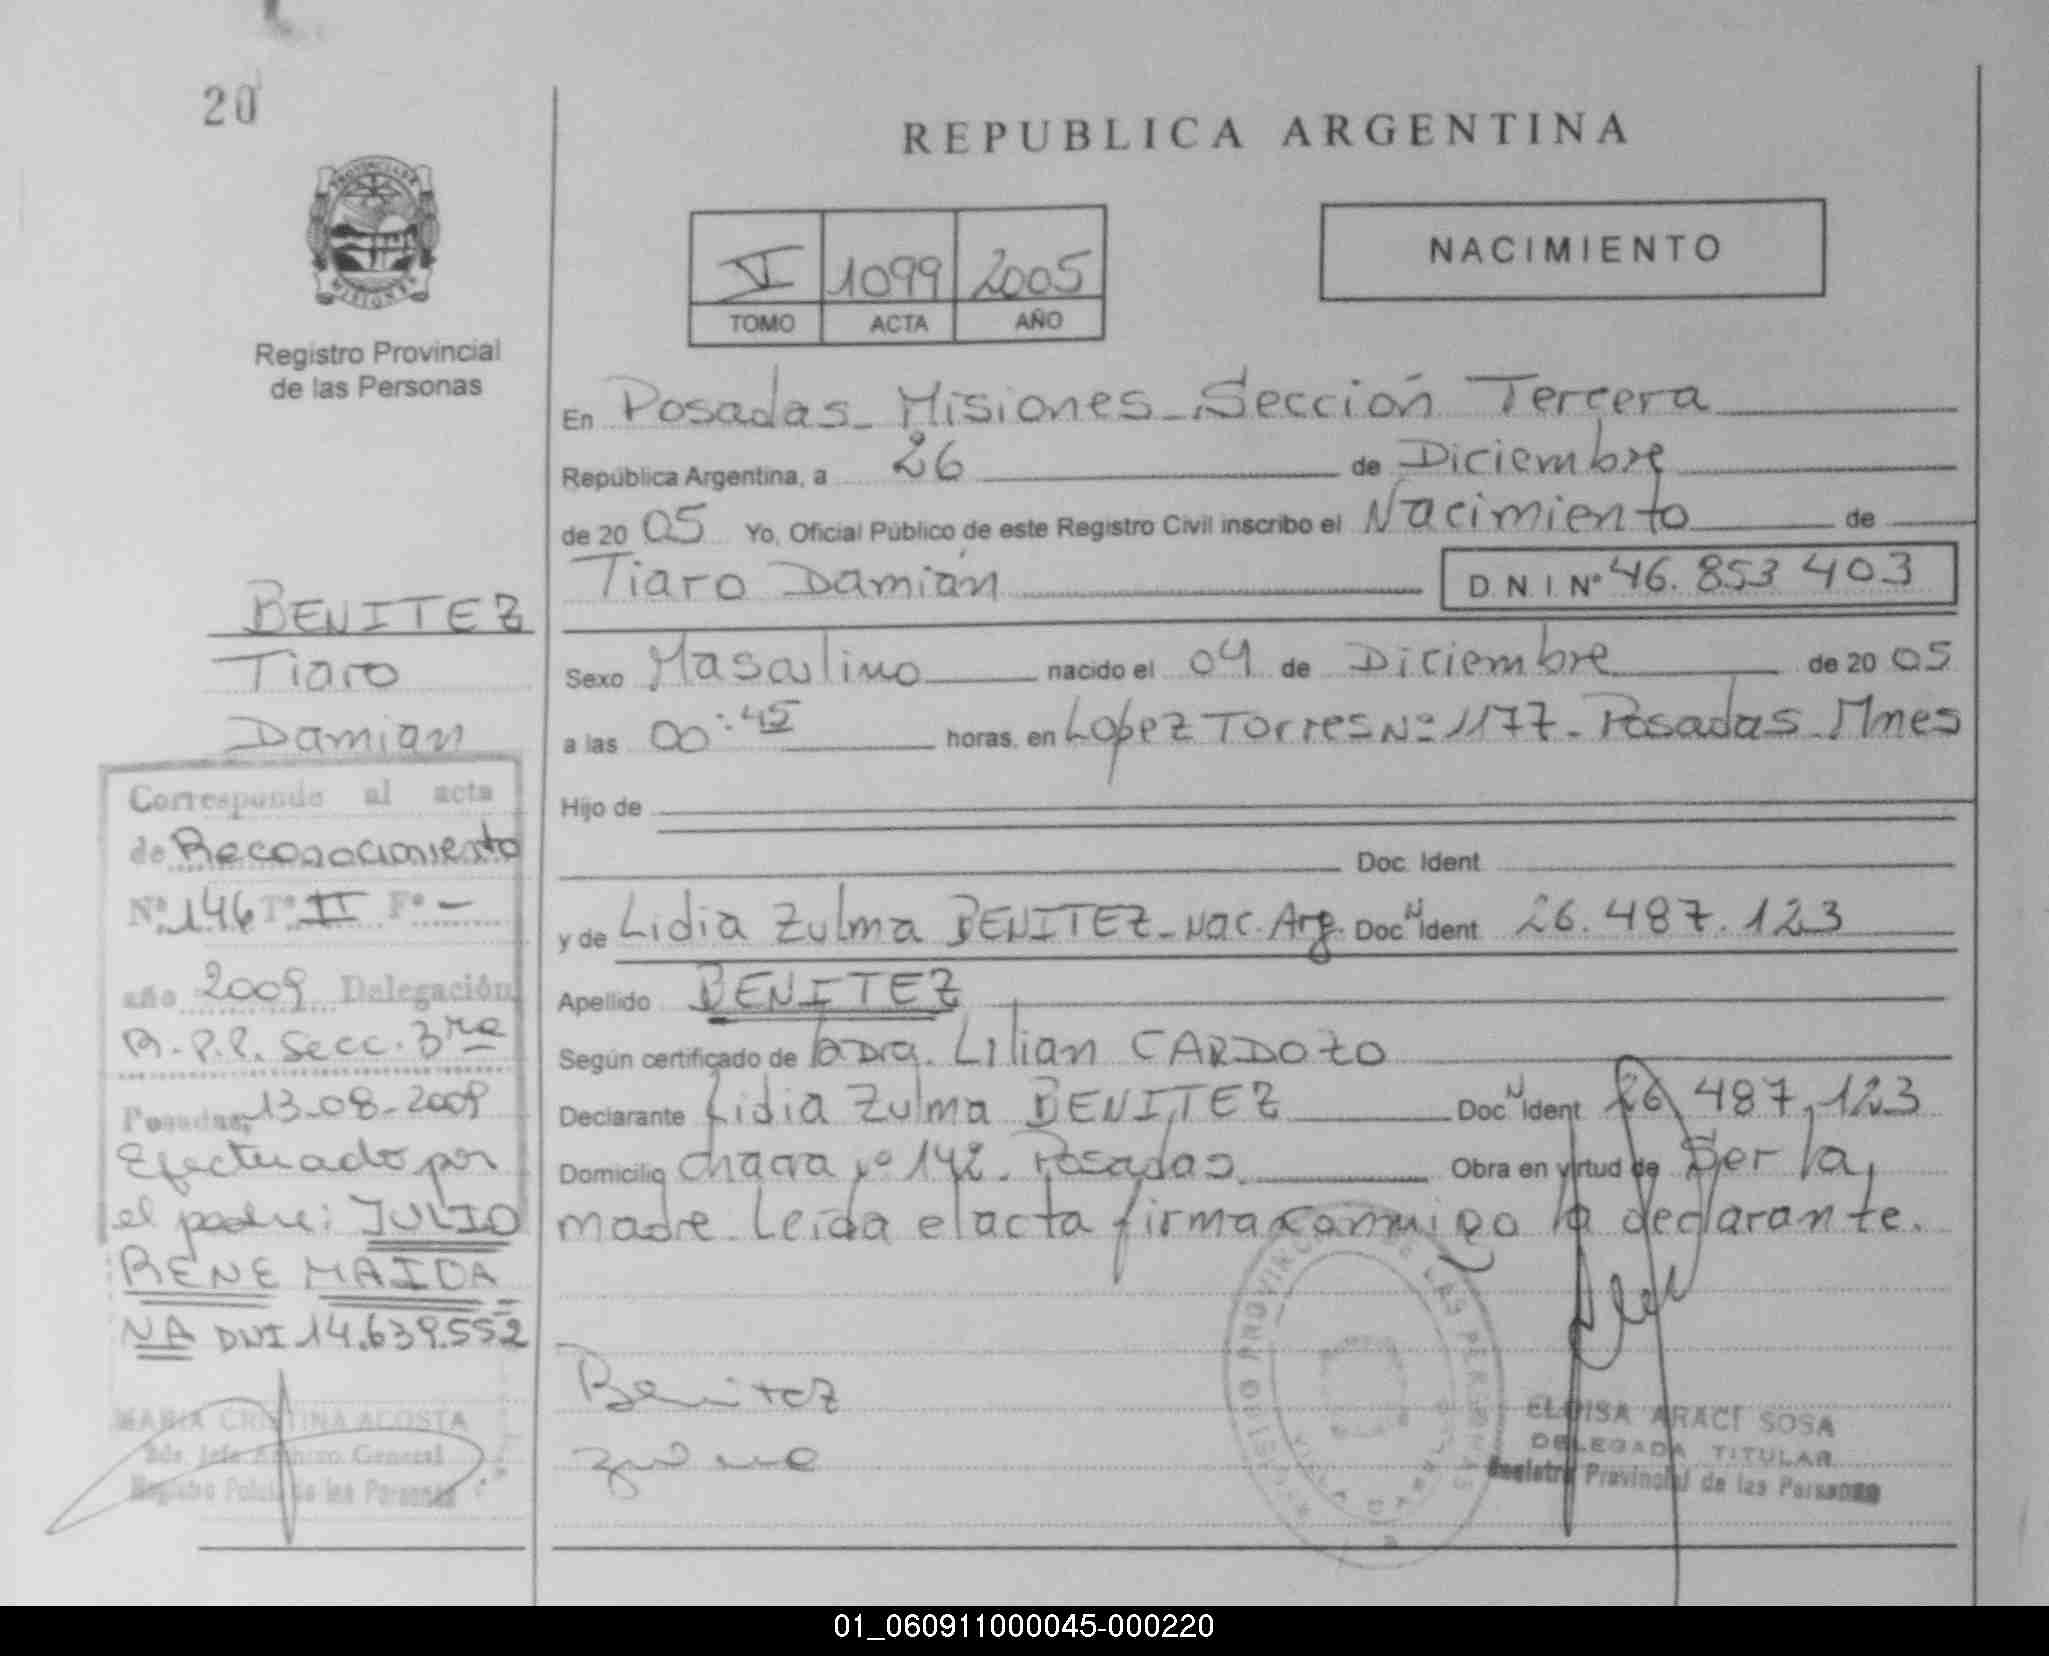 20
PROVINCIA DE
MISIONES
Registro Provincial
de las Personas
BENITEZ
Tiaro
Damian
Corresponde al acta
de Reconocimiento
Nº 146 Tº II Fº -
año 2009 Delegación
R.P.P. Secc. 3ra
Posadas, 13-08-2009
Efectuado por
el padre: JULIO
RENE MAIDA=
NA DNI 14.639.552
MARIA CRISTINA ACOSTA
Archivo General
de las Personas
REPUBLICA ARGENTINA
VI 1099 2005
TOMO ACTA AÑO
NACIMIENTO
En Posadas - Misiones - Sección Tercera
República Argentina, a 26 de Diciembre
de 20 05 Yo, Oficial Público de este Registro Civil inscribo el Nacimiento de
Tiaro Damián D.N.I. Nº 46.853 403
Sexo Masculino nacido el 04 de Diciembre de 20 05
a las 00:45 horas, en Lopez Torres Nº 1177 - Posadas - Mnes
Hijo de
Doc. Ident.
y de Lidia Zulma BENITEZ - Nac. Arg. Doc. N Ident 26.487.123
Apellido BENITEZ
Según certificado de la Dra. Lilian CARDOZO
Declarante Lidia Zulma BENITEZ Doc. N Ident 26.487.123
Domicilio Chacra Nº 142 - Posadas Obra en virtud de Ser la
madre. Leída el acta firma conmigo la declarante.
Benitez
Zulma
REGISTRO PROVINCIAL DE LAS PERSONAS
ELOISA ARACI SOSA
DELEGADA TITULAR
Registro Provincial de las Personas
01_060911000045-000220